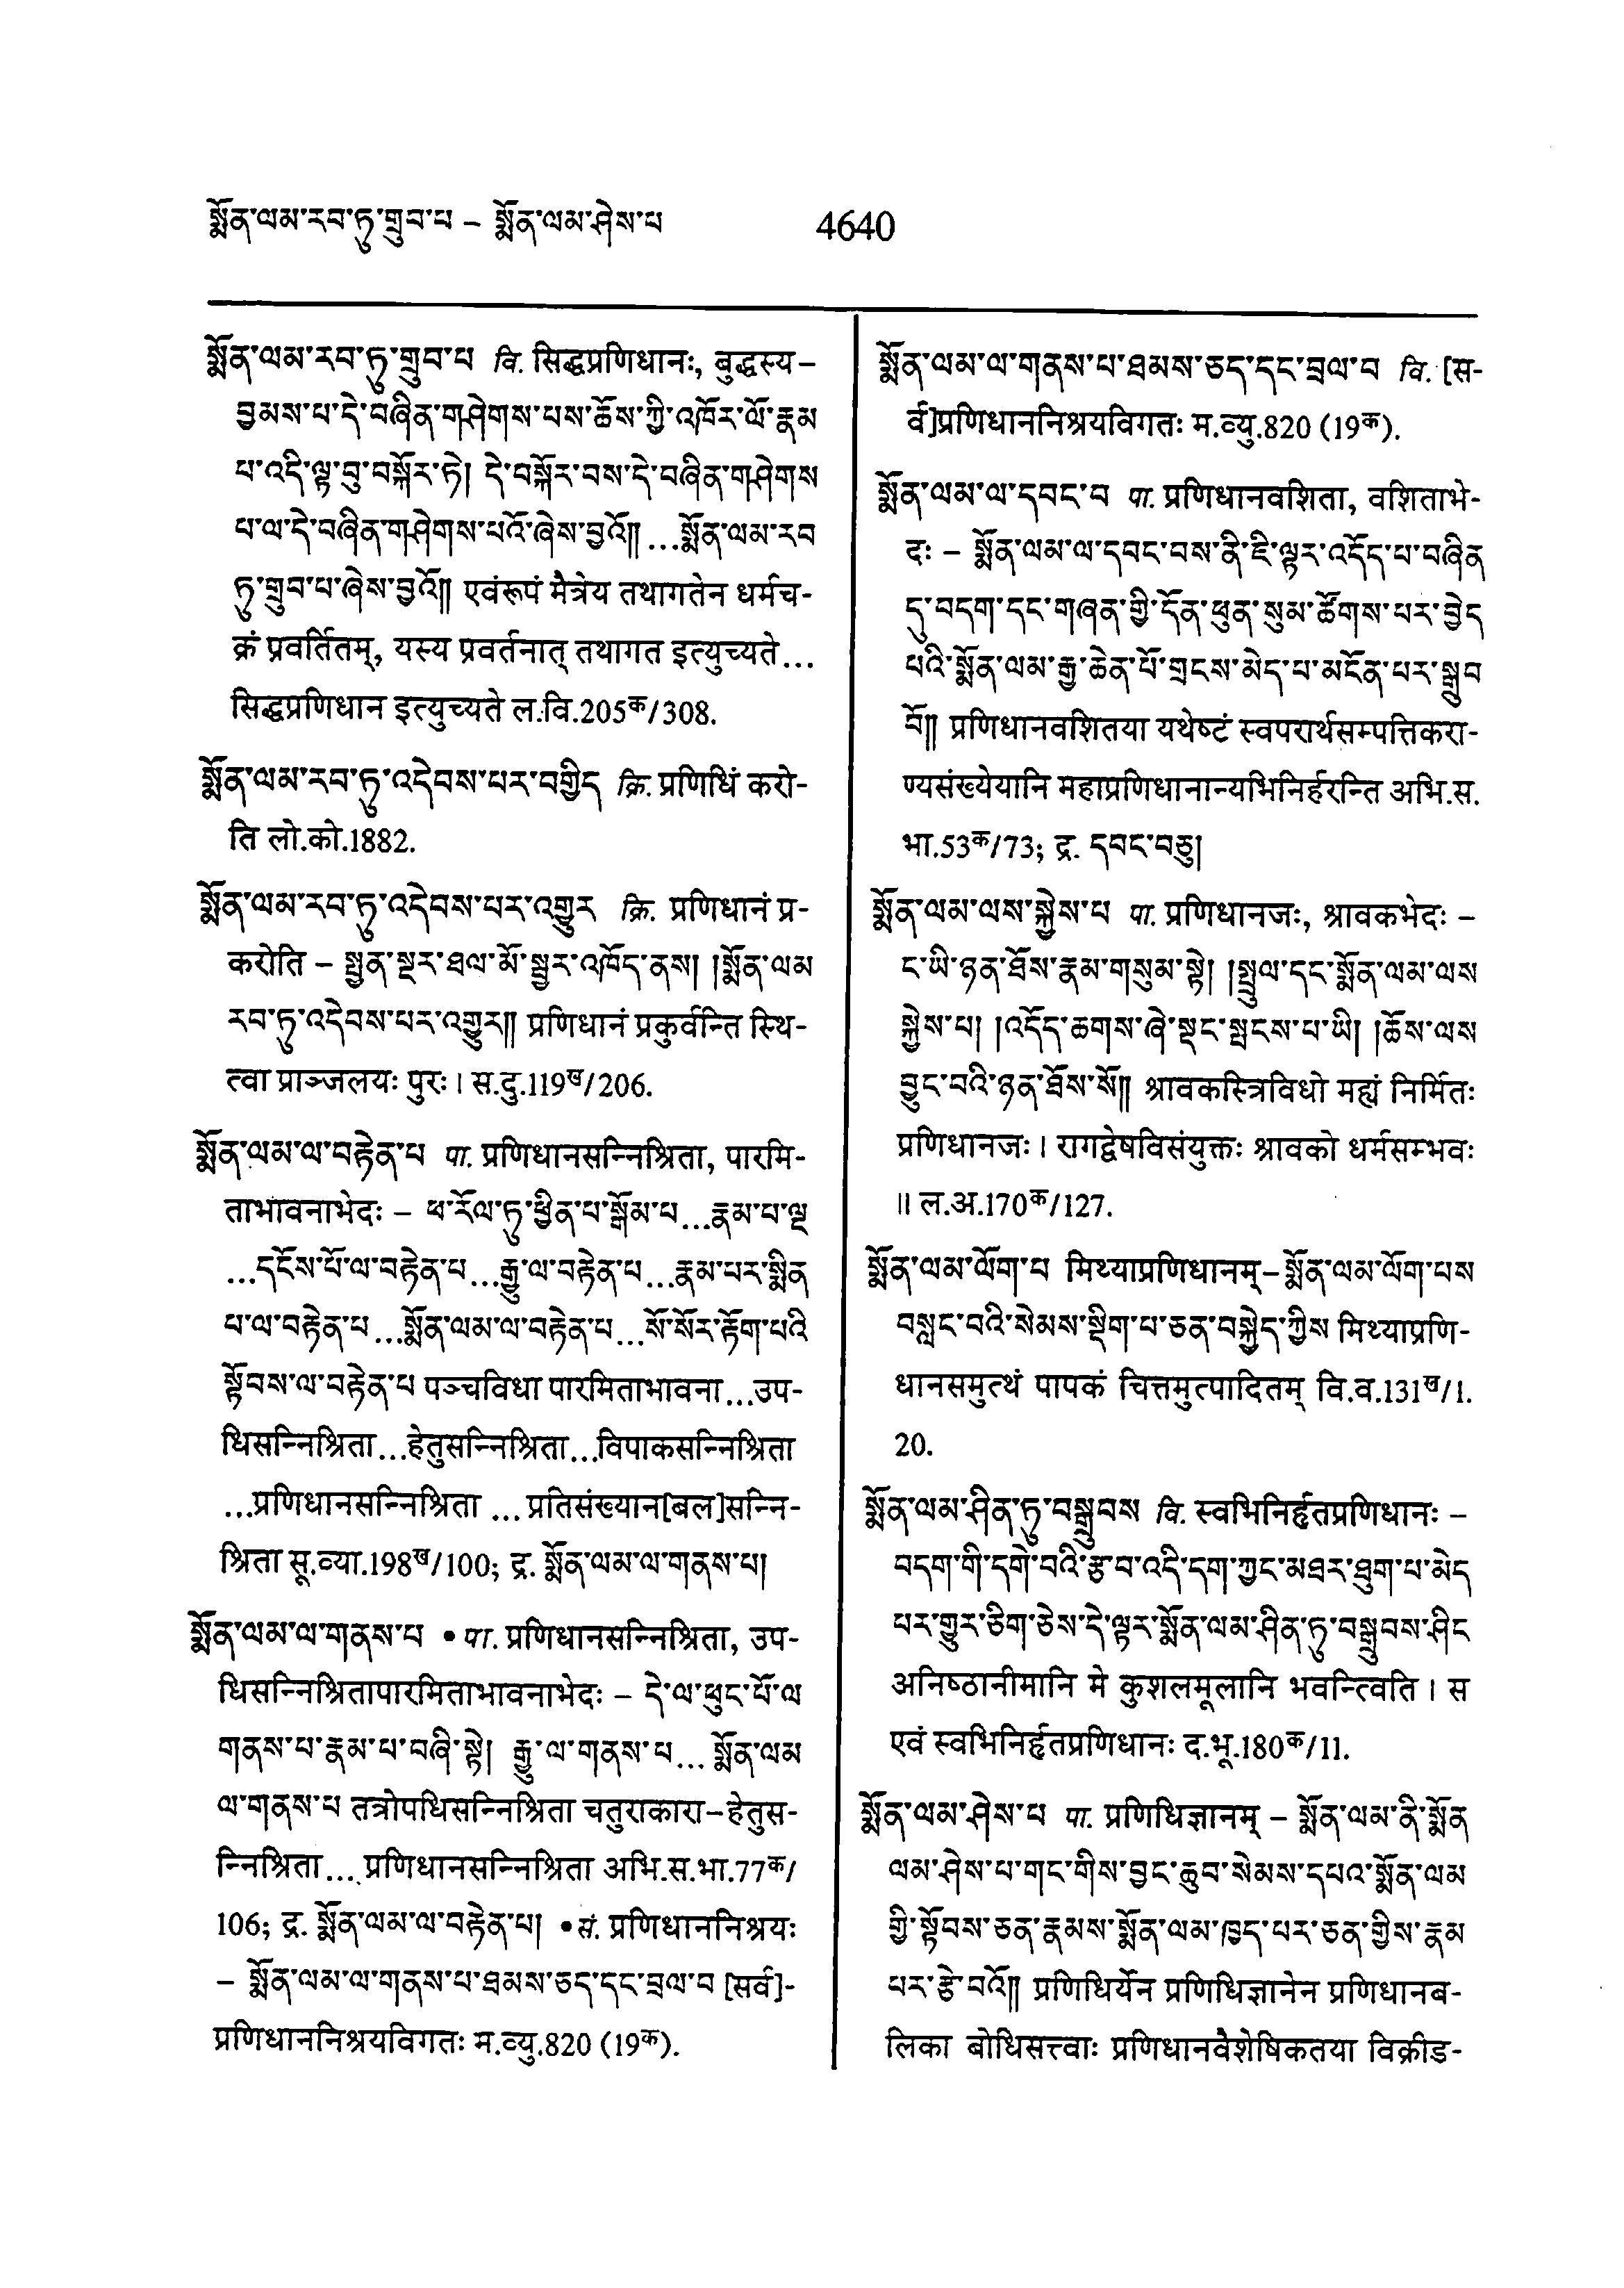 སྨོན་ལམ་རབ་ཏུ་གྲུབ་པ – སྨོན་ལམ་ཤེས་པ
4640
སྨོན་ལམ་རབ་ཏུ་གྲུབ་པ वि. सिद्धप्रणिधानः, बुद्धस्य–
བྱམས་པ་དེ་བཞིན་གཤེགས་པས་ཆོས་ཀྱི་འཁོར་ལོ་རྣམ
པ་འདི་ལྟ་བུ་བསྐོར་ཏེ། དེ་བསྐོར་བས་དེ་བཞིན་གཤེགས
པ་ལ་དེ་བཞིན་གཤེགས་པའོ་ཞེས་བྱའོ༎ ...སྨོན་ལམ་རབ
ཏུ་གྲུབ་པ་ཞེས་བྱའོ༎ एवंरूपं मैत्रेय तथागतेन धर्मच-
क्रं प्रवर्तितम्, यस्य प्रवर्तनात् तथागत इत्युच्यते...
सिद्धप्रणिधान इत्युच्यते ल.वि.205क/308.
སྨོན་ལམ་རབ་ཏུ་འདེབས་པར་བགྱིད क्रि. प्रणिधिं करो-
ति लो.को.1882.
སྨོན་ལམ་རབ་ཏུ་འདེབས་པར་འགྱུར क्रि. प्रणिधानं प्र-
करोति – སྤྱན་སྔར་ཐལ་མོ་སྦྱར་འཁོད་ནས། །སྨོན་ལམ
རབ་ཏུ་འདེབས་པར་འགྱུར༎ प्रणिधानं प्रकुर्वन्ति स्थि-
त्वा प्राञ्जलयः पुरः। स.दु.119ख/206.
སྨོན་ལམ་ལ་བརྟེན་པ पा. प्रणिधानसन्निश्रिता, पारमि-
ताभावनाभेदः – ཕ་རོལ་ཏུ་ཕྱིན་པ་སྒོམ་པ...རྣམ་པ་ལྔ
...དངོས་པོ་ལ་བརྟེན་པ...རྒྱུ་ལ་བརྟེན་པ...རྣམ་པར་སྨིན
པ་ལ་བརྟེན་པ...སྨོན་ལམ་ལ་བརྟེན་པ...སོ་སོར་རྟོག་པའི
སྟོབས་ལ་བརྟེན་པ पञ्चविधा पारमिताभावना...उप-
धिसन्निश्रिता...हेतुसन्निश्रिता...विपाकसन्निश्रिता
...प्रणिधानसन्निश्रिता ... प्रतिसंख्यान[बल]सन्नि-
श्रिता सू.व्या.198ख/100; द्र. སྨོན་ལམ་ལ་གནས་པ།
སྨོན་ལམ་ལ་གནས་པ • पा. प्रणिधानसन्निश्रिता, उप-
धिसन्निश्रितापारमिताभावनाभेदः – དེ་ལ་ཕུང་པོ་ལ
གནས་པ་རྣམ་པ་བཞི་སྟེ། རྒྱུ་ལ་གནས་པ... སྨོན་ལམ
ལ་གནས་པ तत्रोपधिसन्निश्रिता चतुराकारा–हेतुस-
न्निश्रिता... प्रणिधानसन्निश्रिता अभि.स.भा.77क/
106; द्र. སྨོན་ལམ་ལ་བརྟེན་པ། • सं. प्रणिधाननिश्रयः
– སྨོན་ལམ་ལ་གནས་པ་ཐམས་ཅད་དང་བྲལ་བ [सर्व]-
प्रणिधाननिश्रयविगतः म.व्यु.820 (19क).
སྨོན་ལམ་ལ་གནས་པ་ཐམས་ཅད་དང་བྲལ་བ वि. [स-
र्व]प्रणिधाननिश्रयविगतः म.व्यु.820 (19क).
སྨོན་ལམ་ལ་དབང་བ पा. प्रणिधानवशिता, वशिताभे-
दः – སྨོན་ལམ་ལ་དབང་བས་ནི་ཇི་ལྟར་འདོད་པ་བཞིན
དུ་བདག་དང་གཞན་གྱི་དོན་ཕུན་སུམ་ཚོགས་པར་བྱེད
པའི་སྨོན་ལམ་རྒྱ་ཆེན་པོ་གྲངས་མེད་པ་མངོན་པར་སྒྲུབ
བོ༎ प्रणिधानवशितया यथेष्टं स्वपरार्थसम्पत्तिकरा-
ण्यसंख्येयानि महाप्रणिधानान्यभिनिर्हरन्ति अभि.स.
भा.53क/73; द्र. དབང་བཅུ།
སྨོན་ལམ་ལས་སྐྱེས་པ पा. प्रणिधानजः, श्रावकभेदः –
ང་ཡི་ཉན་ཐོས་རྣམ་གསུམ་སྟེ། །སྤྲུལ་དང་སྨོན་ལམ་ལས
སྐྱེས་པ། །འདོད་ཆགས་ཞེ་སྡང་སྤངས་པ་ཡི། །ཆོས་ལས
བྱུང་བའི་ཉན་ཐོས་སོ༎ श्रावकस्त्रिविधो मह्यं निर्मितः
प्रणिधानजः। रागद्वेषविसंयुक्तः श्रावको धर्मसम्भवः
॥ ल.अ.170क/127.
སྨོན་ལམ་ལོག་པ मिथ्याप्रणिधानम्–སྨོན་ལམ་ལོག་པས
བསླང་བའི་སེམས་སྡིག་པ་ཅན་བསྐྱེད་ཀྱིས मिथ्याप्रणि-
धानसमुत्थं पापकं चित्तमुत्पादितम् वि.व.131ख/1.
20.
སྨོན་ལམ་ཤིན་ཏུ་བསྒྲུབས वि. स्वभिनिर्हृतप्रणिधानः –
བདག་གི་དགེ་བའི་རྩ་བ་འདི་དག་ཀྱང་མཐར་ཐུག་པ་མེད
པར་གྱུར་ཅིག་ཅེས་དེ་ལྟར་སྨོན་ལམ་ཤིན་ཏུ་བསྒྲུབས་ཤིང
अनिष्ठानीमानि मे कुशलमूलानि भवन्त्विति। स
एवं स्वभिनिर्हृतप्रणिधानः द.भू.180क/11.
སྨོན་ལམ་ཤེས་པ पा. प्रणिधिज्ञानम् – སྨོན་ལམ་ནི་སྨོན
ལམ་ཤེས་པ་གང་གིས་བྱང་ཆུབ་སེམས་དཔའ་སྨོན་ལམ
གྱི་སྟོབས་ཅན་རྣམས་སྨོན་ལམ་ཁྱད་པར་ཅན་གྱིས་རྣམ
པར་རྩེ་བའོ༎ प्रणिधिर्येन प्रणिधिज्ञानेन प्रणिधानब-
लिका बोधिसत्त्वाः प्रणिधानवैशेषिकतया विक्रीड-